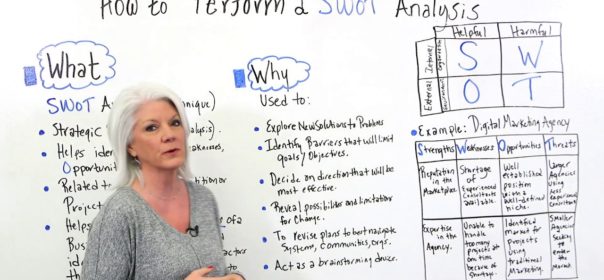 How to Perform a SWOT Analysis
What
SWOT
Strategic
Helps
Opportun
Related to
Project
Helps
Why
Used to:
Explore New Solutions to Problems
Identify Barriers that will limit
goals/Objectives.
Decide on direction that will be
most effective.
Reveal possibilities and limitation
for Change.
To revise plans to best navigate
Systems, Communities, Orgs.
Act as a brainstorming device.
Helpful
Harmful
Internal
S
W
External
O
T
Example: Digital Marketing Agency
Strengths
Weaknesses
Opportunities
Threats
Reputation
in the
Marketplace.
Shortage of
Experienced
Consultants
available.
Well
established
position
with a
well-defined
niche.
Larger
Agencies
using
less
experienced
Consultants
Expertise in
the Agency.
Unable to
handle
too many
projects at
one time
because of
Shortage.
Identified
market for
projects
using
traditional
Marketing.
Smaller
Agencies
Seeking
to enter
the
Market